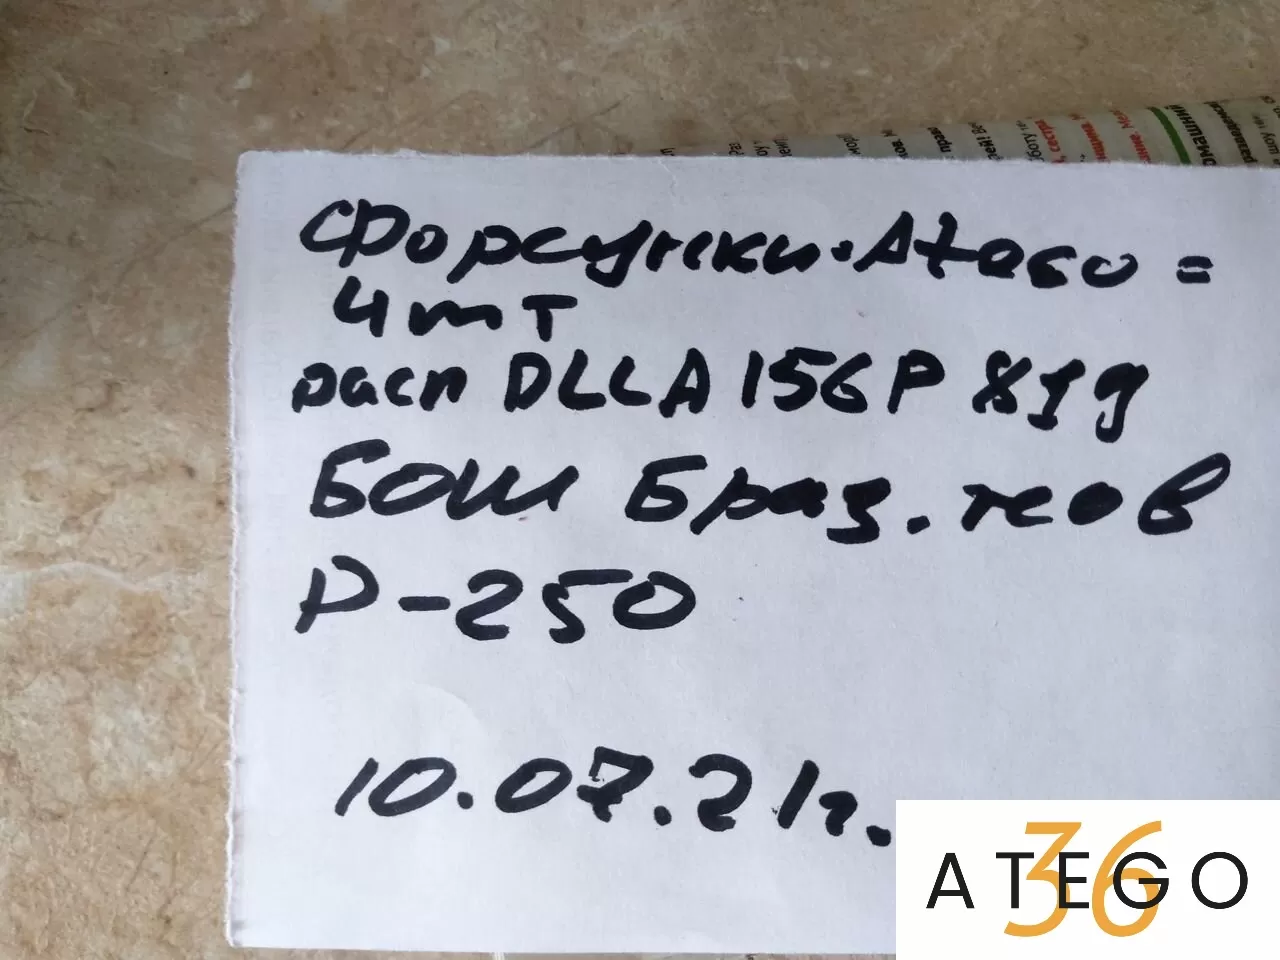 Форсунки. Atego =
4 шт
расп DLLA 156 P 819
БОШ Браз. нов
Р-250
10.07.21г.
ATEGO
36